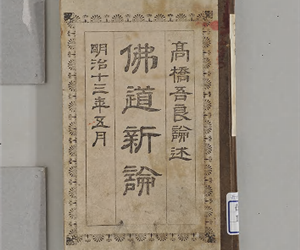 高橋吾良論述
佛道新論
明治十三年五月